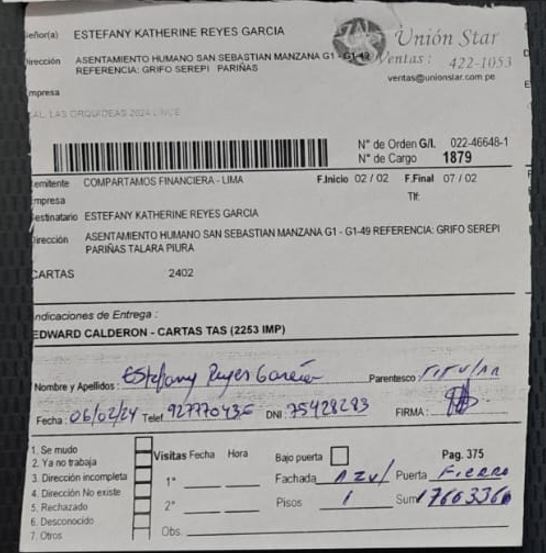 Señor(a) ESTEFANY KATHERINE REYES GARCIA
Unión Star
Dirección ASENTAMIENTO HUMANO SAN SEBASTIAN MANZANA G1 - G1-49
REFERENCIA: GRIFO SEREPI PARIÑAS
Ventas : 422-1053
ventas@unionstar.com.pe
mpresa
CAL. LAS ORQUIDEAS 2624 LINCE
N° de Orden G/I. 022-46648-1
N° de Cargo 1879
emitente COMPARTAMOS FINANCIERA - LIMA F.Inicio 02 / 02 F.Final 07 / 02
mpresa Tlf:
estinatario ESTEFANY KATHERINE REYES GARCIA
Dirección ASENTAMIENTO HUMANO SAN SEBASTIAN MANZANA G1 - G1-49 REFERENCIA: GRIFO SEREPI
PARIÑAS TALARA PIURA
CARTAS 2402
Indicaciones de Entrega :
EDWARD CALDERON - CARTAS TAS (2253 IMP)
Nombre y Apellidos : Estefany Reyes García Parentesco : TITULAR
Fecha : 06/02/24 Telef. DNI : 75428283 FIRMA :
1. Se mudo
2. Ya no trabaja
3. Dirección incompleta
4. Dirección No existe
5. Rechazado
6. Desconocido
7. Otros
Visitas Fecha Hora
1°
2°
Obs.
Bajo puerta Pag. 375
Fachada AZUL Puerta FIERRO
Pisos 1 Sum